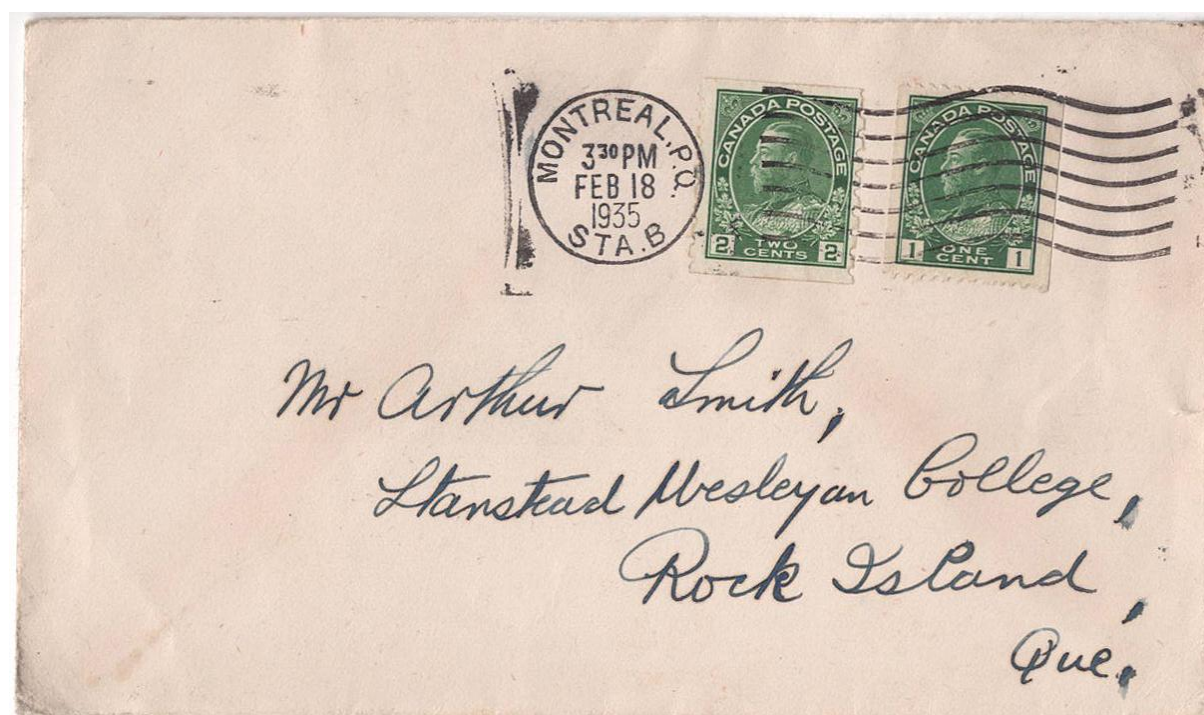 MONTREAL, P.Q.
3 30 PM
FEB 18
1935
STA. B
CANADA POSTAGE
2 TWO CENTS 2
CANADA POSTAGE
1 ONE CENT 1
Mr Arthur Smith,
Stanstead Wesleyan College,
Rock Island,
Que.